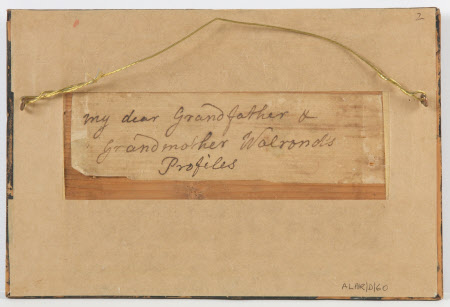 2
my dear Grandfather &
Grandmother Walronds
Profiles
ALBR/D/60